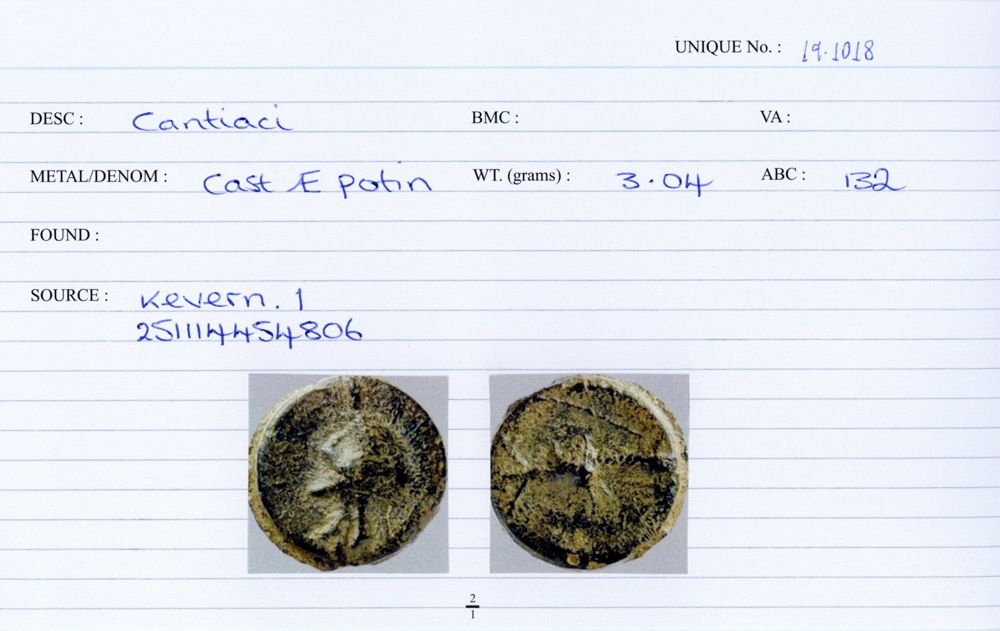 UNIQUE No. : 19.1018
DESC : Cantiaci BMC : VA :
METAL/DENOM : Cast Æ potin WT. (grams) : 3.04 ABC : 132
FOUND :
SOURCE : Kevern. 1
251114454806
2
1